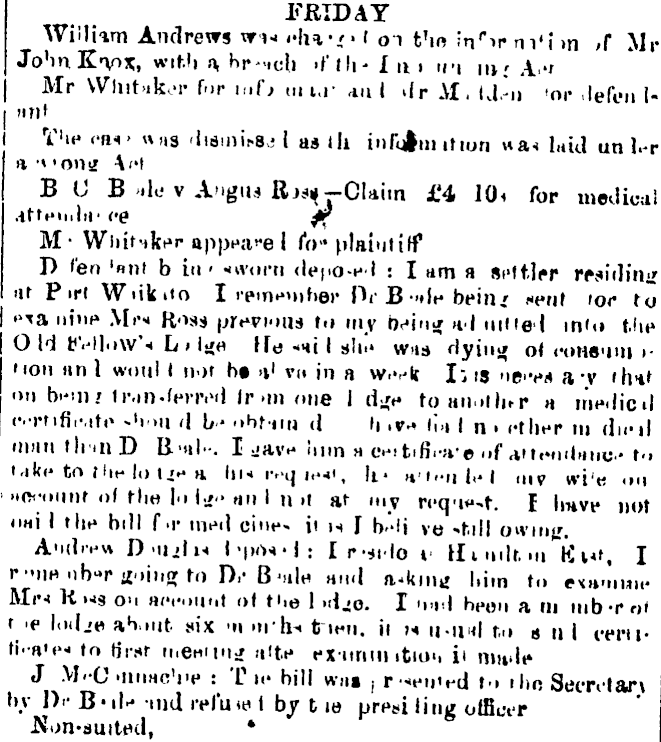 FRIDAY
William Andrews was charged on the information of Mr
John Knox, with a breach of the Impounding Act
Mr Whitaker for informant and Mr Madden for defend-
ant
The case was dismissed as the information was laid under
a wrong Act
B C Beale v Angus Ross—Claim £4 10s for medical
attendance
Mr Whitaker appeared for plaintiff
Defendant being sworn deposed : I am a settler residing
at Port Waikato I remember Dr Beale being sent for to
examine Mrs Ross previous to my being admitted into the
Odd Fellow's Lodge He said she was dying of consump-
tion and would not be alive in a week It is necessary that
on being transferred from one lodge to another a medical
certificate should be obtained have had no other medical
man than Dr Beale. I gave him a certificate of attendance to
take to the lodge at his request, he attended my wife on
account of the lodge and not at my request. I have not
paid the bill for medicines it is I believe still owing.
Andrew Douglas deposed : I reside at Hamilton East, I
remember going to Dr Beale and asking him to examine
Mrs Ross on account of the lodge. I had been a member of
the lodge about six months then, it is usual to send certi-
ficates to first meeting after examination is made
J McConnachie : The bill was presented to the Secretary
by Dr Beale and refused by the presiding officer
Non-suited,